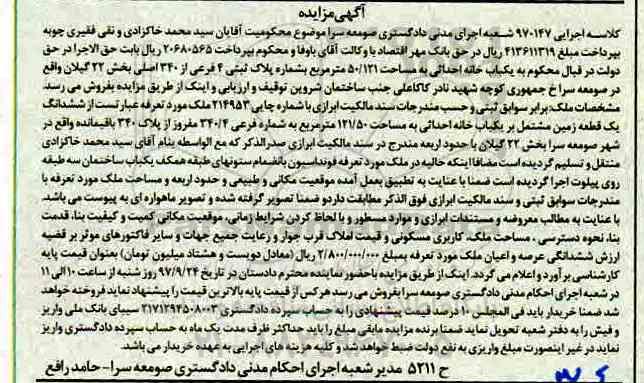 آگهی مزایده
کلاسه اجرایی ۹۷۰۱۴۷ شعبه اجرای مدنی دادگستری صومعه سرا موضوع محکومیت آقایان سید محمد خاکزادی و نقی فقیری چوبه
بپرداخت مبلغ ۴۱۳۶۱۱۳۱۹ ریال در حق بانک مهر اقتصاد با وکالت آقای باوفا و محکوم بپرداخت ۲۰۶۸۰۵۶۵ ریال بابت حق الاجرا در حق
دولت در قبال محکوم به یکباب خانه احداثی به مساحت ۵۰/۱۲۱ مترمربع بشماره پلاک ثبتی ۴ فرعی از ۳۴۰ اصلی بخش ۲۲ گیلان واقع
در صومعه سرا خ جمهوری کوچه شهید نادر کاکاعلی جنب ساختمان شروین توقیف و ارزیابی و اینک از طریق مزایده بفروش می رسد.
مشخصات ملک: برابر سوابق ثبتی و حسب مندرجات سند مالکیت ابرازی با شماره چاپی ۲۱۴۹۵۳ ملک مورد تعرفه عبارتست از ششدانگ
یک قطعه زمین مشتمل بر یکباب خانه احداثی به مساحت ۱۲۱/۵۰ مترمربع به شماره فرعی ۳۴۰/۴ مفروز از پلاک ۳۴۰ باقیمانده واقع در
شهر صومعه سرا بخش ۲۲ گیلان با حدود اربعه مندرج در سند مالکیت ابرازی صدرالذکر که مع الواسطه بنام آقای سید محمد خاکزادی
منتقل و تسلیم گردیده است مضافا اینکه حالیه در ملک مورد تعرفه فونداسیون بانضمام ستونهای طبقه همکف یکباب ساختمان سه طبقه
روی پیلوت اجرا گردیده است ضمنا با عنایت به تطبیق بعمل آمده موقعیت مکانی و طبیعی و حدود اربعه و مساحت ملک مورد تعرفه با
مندرجات سوابق ثبتی و سند مالکیت ابرازی فوق الذکر مطابقت دارد و ضمنا تصویر گرفته شده و تصویر ماهواره ای به پیوست می باشد.
با عنایت به مطالب معروضه و مستندات ابرازی و موارد مسطور و با لحاظ کردن شرایط زمانی، موقعیت مکانی کمیت و کیفیت بنا، قدمت
بنا، نحوه دسترسی، مساحت ملک، کاربری مسکونی و قیمت املاک قرب جوار و رعایت جمیع جهات و سایر فاکتورهای موثر بر قضیه
ارزش ششدانگی عرصه و اعیان ملک مورد تعرفه بمبلغ ۲/۸۰۰/۰۰۰/۰۰۰ ریال (معادل دویست و هشتاد میلیون تومان) بعنوان قیمت پایه
کارشناسی برآورد و اعلام می گردد. اینک از طریق مزایده با حضور نماینده محترم دادستان در تاریخ ۹۷/۹/۲۴ روز شنبه از ساعت ۱۰ الی ۱۱
در شعبه اجرای احکام مدنی دادگستری صومعه سرا بفروش می رسد هر کس از قیمت پایه بالاترین قیمت را پیشنهاد نماید فروخته خواهد
شد ضمنا خریدار باید فی المجلس ۱۰ درصد قیمت پیشنهادی را به حساب سپرده دادگستری ۲۱۷۱۲۹۴۵۰۸۰۰۳ سیبای بانک ملی واریز
و فیش را به دفتر شعبه تحویل نماید ضمنا برنده مزایده مابقی مبلغ را باید حداکثر ظرف مدت یک ماه به حساب سپرده دادگستری واریز
نماید در غیر اینصورت مبلغ واریزی به نفع دولت ضبط خواهد شد و کلیه هزینه های اجرایی به عهده خریدار می باشد.
ح ۵۲۱۱ مدیر شعبه اجرای احکام مدنی دادگستری صومعه سرا - حامد رافع